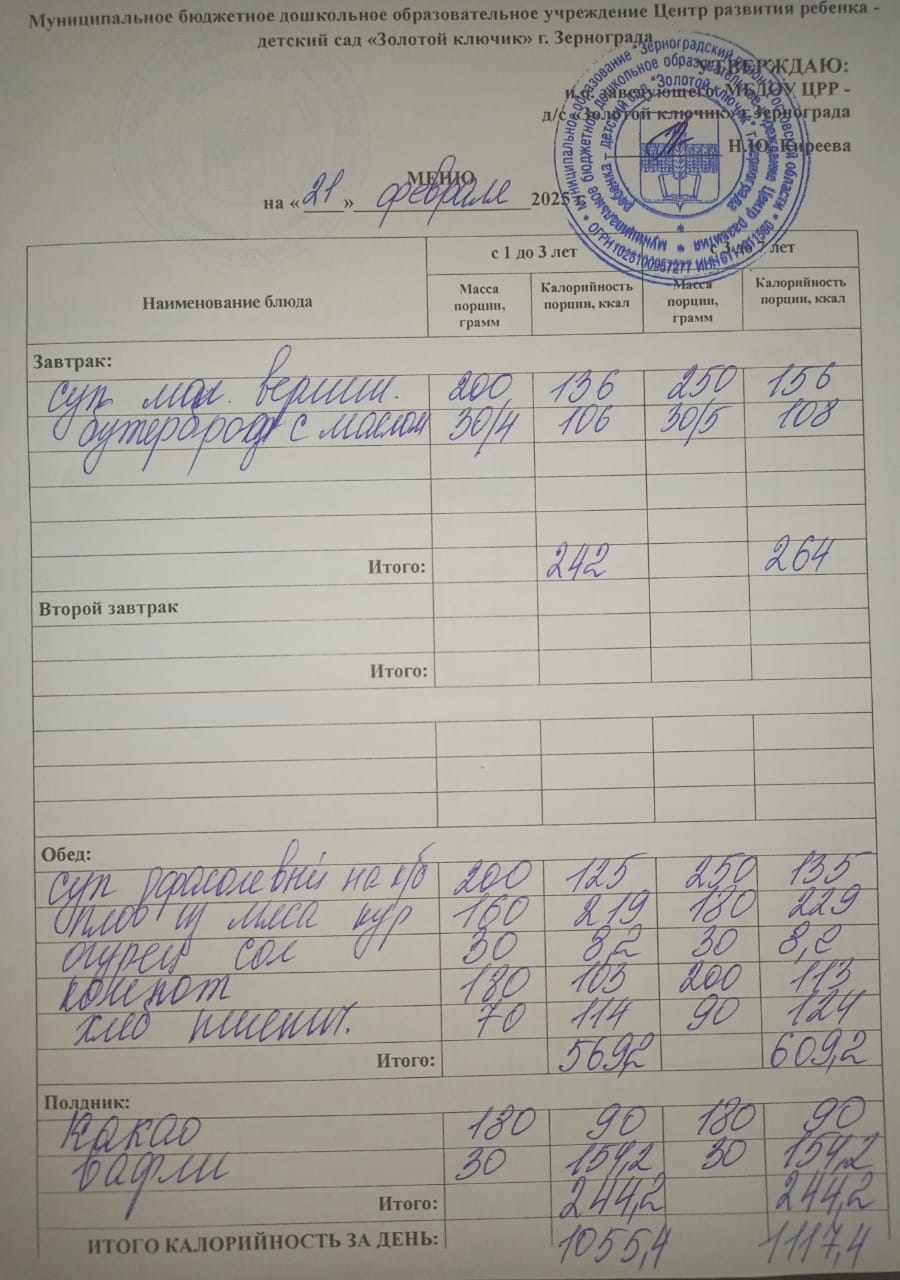 Муниципальное бюджетное дошкольное образовательное учреждение Центр развития ребенка -
детский сад «Золотой ключик» г. Зернограда
УТВЕРЖДАЮ:
и.о. заведующего МБДОУ ЦРР -
д/с «Золотой ключик» г.Зернограда
Н.Ю. Киреева
МЕНЮ
на «21» февраля 2025 г.
Наименование блюда с 1 до 3 лет с 3 до 7 лет
Масса порции, грамм Калорийность порции, ккал Масса порции, грамм Калорийность порции, ккал
Завтрак:
суп мол. вермиш. 200 136 250 156
бутерброд с маслом 30/4 106 30/5 108
Итого: 242 264
Второй завтрак
Итого:
Обед:
суп фасолевый на к/б 200 125 250 135
плов из мяса кур 160 219 180 229
огурец сол 30 8,2 30 8,2
компот 180 103 200 113
хлеб пшенич. 70 114 90 124
Итого: 569,2 609,2
Полдник:
Какао 180 90 180 90
вафли 30 154,2 30 154,2
Итого: 244,2 244,2
ИТОГО КАЛОРИЙНОСТЬ ЗА ДЕНЬ: 1055,4 1117,4